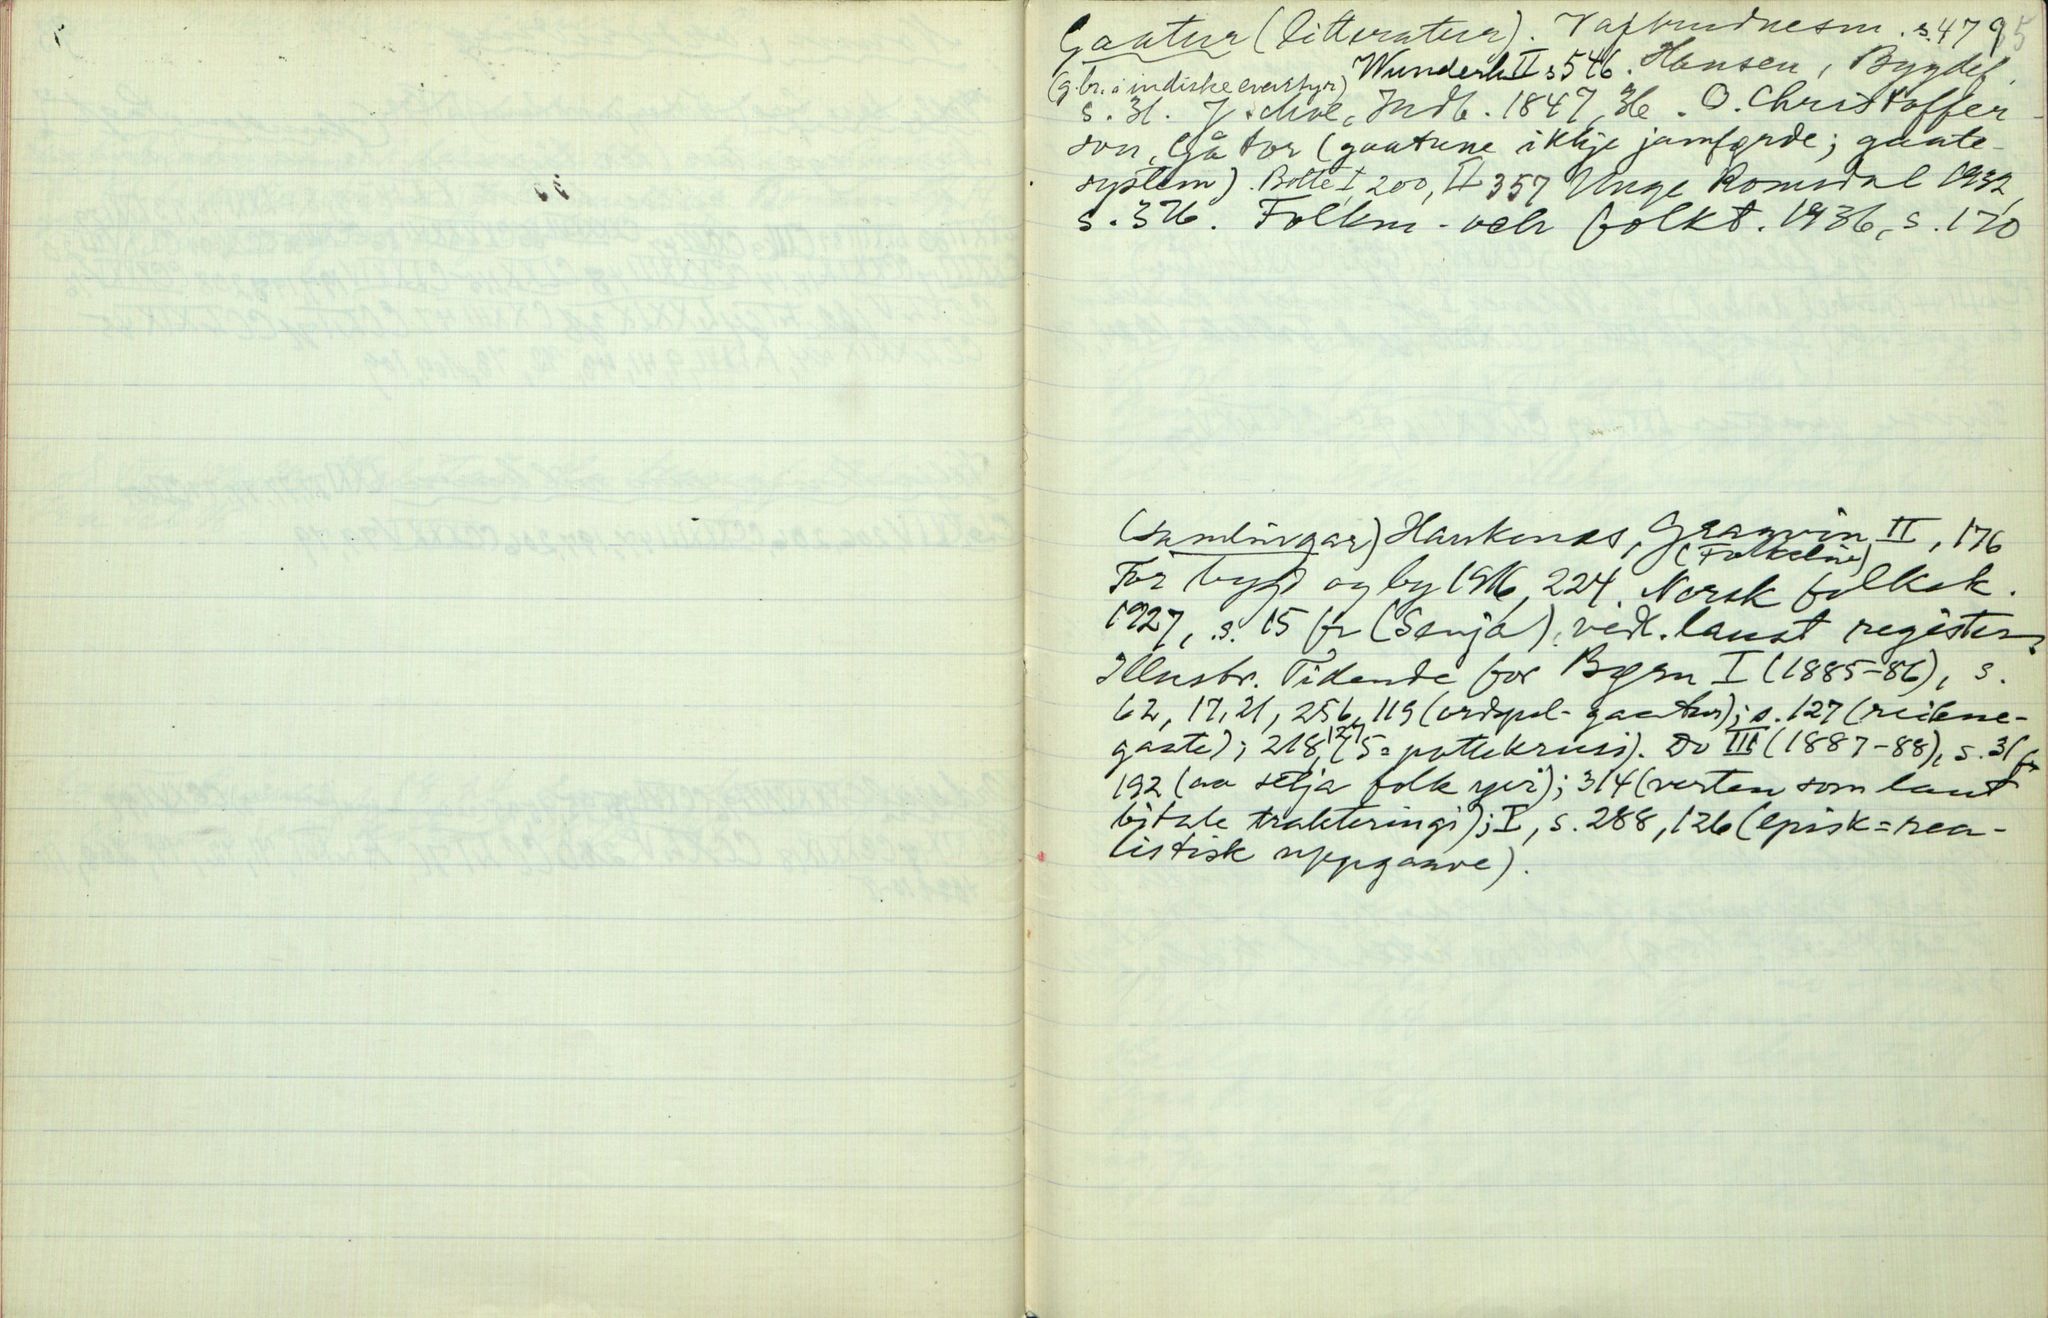 Gaatur (litteratur). Vafbrudnesm. s. 47 95
(g.br. i indiske eventyr) Wunderh II s 546. Hansen, Bygdef.
s. 31. J. Moe, Indb. 1847, 36. O. Christoffer-
son, Gåtor (gaatune ikkje jamførde; gaate-
system). Bolte I, 200, II 357 Unge Romsdal 1932,
s. 376. Folkm.- och folkt. 1936, s. 170
(samlingar) Haukenæs, Graavin II, 176
For bygd og by 1916, 224. (Folkeliv) Norsk folkek.
1927, s. 15 fr (Senja), vedl. laust register.
Illustr. Tidende for Børn I (1885-86), s.
62, 17, 21, 256, 119 (ordspel-gaatur); s. 127 (reikne-
gaate); 218, 127 (5= pottekrus). Do III (1887-88), s. 31 fr
192 (aa selja folk ); 314 (verten som laut
bitale trakteringi); I, s. 288, 126 (episk=rea-
listisk uppgaave).